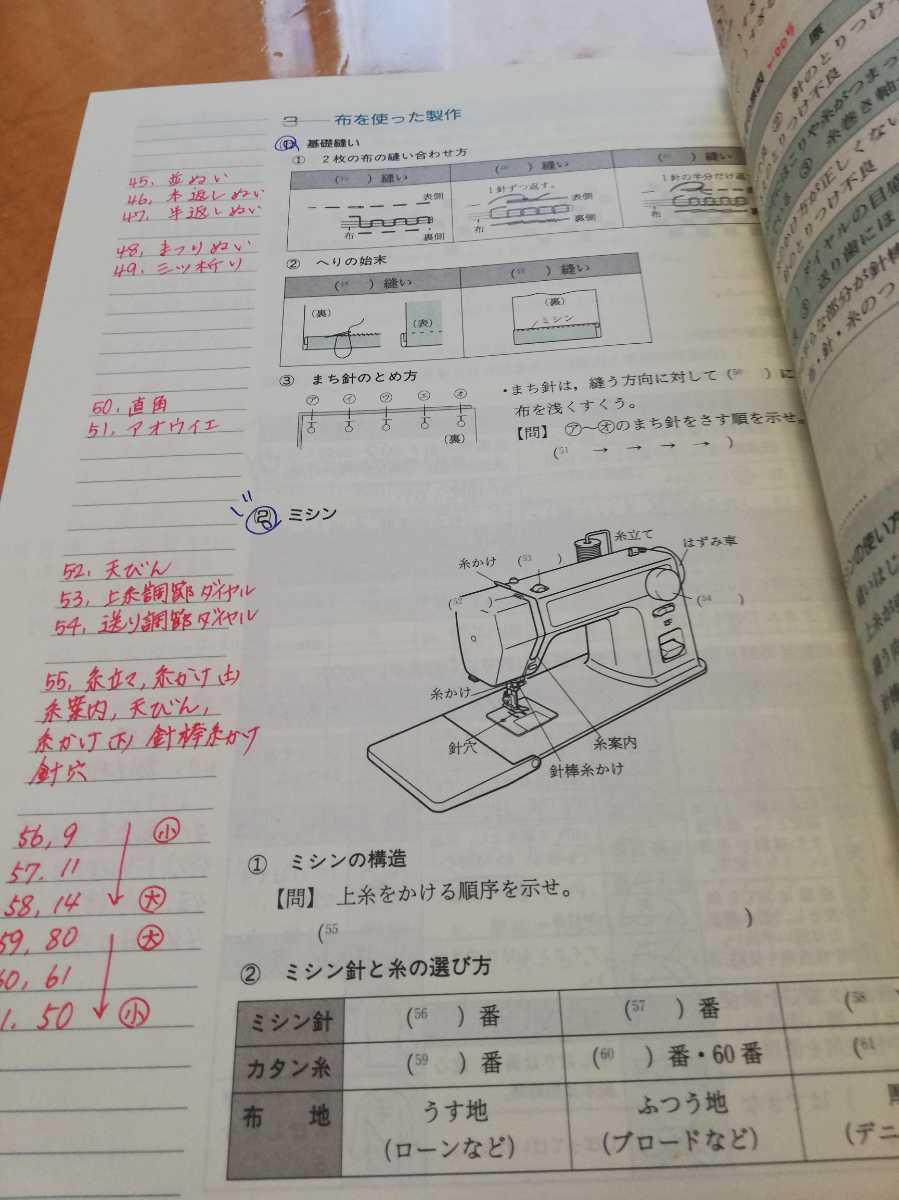 3 布を使った製作
1 基礎縫い
① 2枚の布の縫い合わせ方
(45 ) 縫い
(46 ) 縫い
(47 ) 縫い
表側
布
裏側
1針ずつ返す。
表側
布
裏側
1針の半分だけ返
布
45, 並ぬい
46, 本返しぬい
47, 半返しぬい
48, まつりぬい
49, 三ツ折り
② へりの始末
(48 ) 縫い
(49 ) 縫い
(裏)
(表)
(裏)
ミシン
③ まち針のとめ方
㋐ ㋑ ㋒ ㋓ ㋔
(裏)
・まち針は，縫う方向に対して (50 ) に
布を浅くすくう。
【問】 ㋐〜㋔のまち針をさす順を示せ。
(51 → → → → )
50, 直角
51, アオウイエ
2 ミシン
糸かけ
(53 )
糸立て
はずみ車
(52 )
(54 )
糸かけ
針穴
糸案内
針棒糸かけ
52, 天びん
53, 上糸調節ダイヤル
54, 送り調節ダイヤル
55, 糸立て, 糸かけ(上)
糸案内, 天びん,
糸かけ(下) 針棒糸かけ
針穴
56, 9 小
57, 11
58, 14 大
59, 80 大
60, 61
1, 50 小
① ミシンの構造
【問】 上糸をかける順序を示せ。
(55 )
② ミシン針と糸の選び方
ミシン針 (56 ) 番 (57 ) 番 (58
カタン糸 (59 ) 番 (60 ) 番・60番 (61
布 地 うす地 ふつう地
(ローンなど) (ブロードなど) (デニ
針のとりつけ
とりつけ不良
ほこりや糸がつまっ
糸巻き軸
かけ方が正しくない
のとりつけ不良
ダイヤルの目盛
送り歯には
な部分が針棒
針・糸のつ
ンの使い方
縫いはじ
上糸が
縫う向